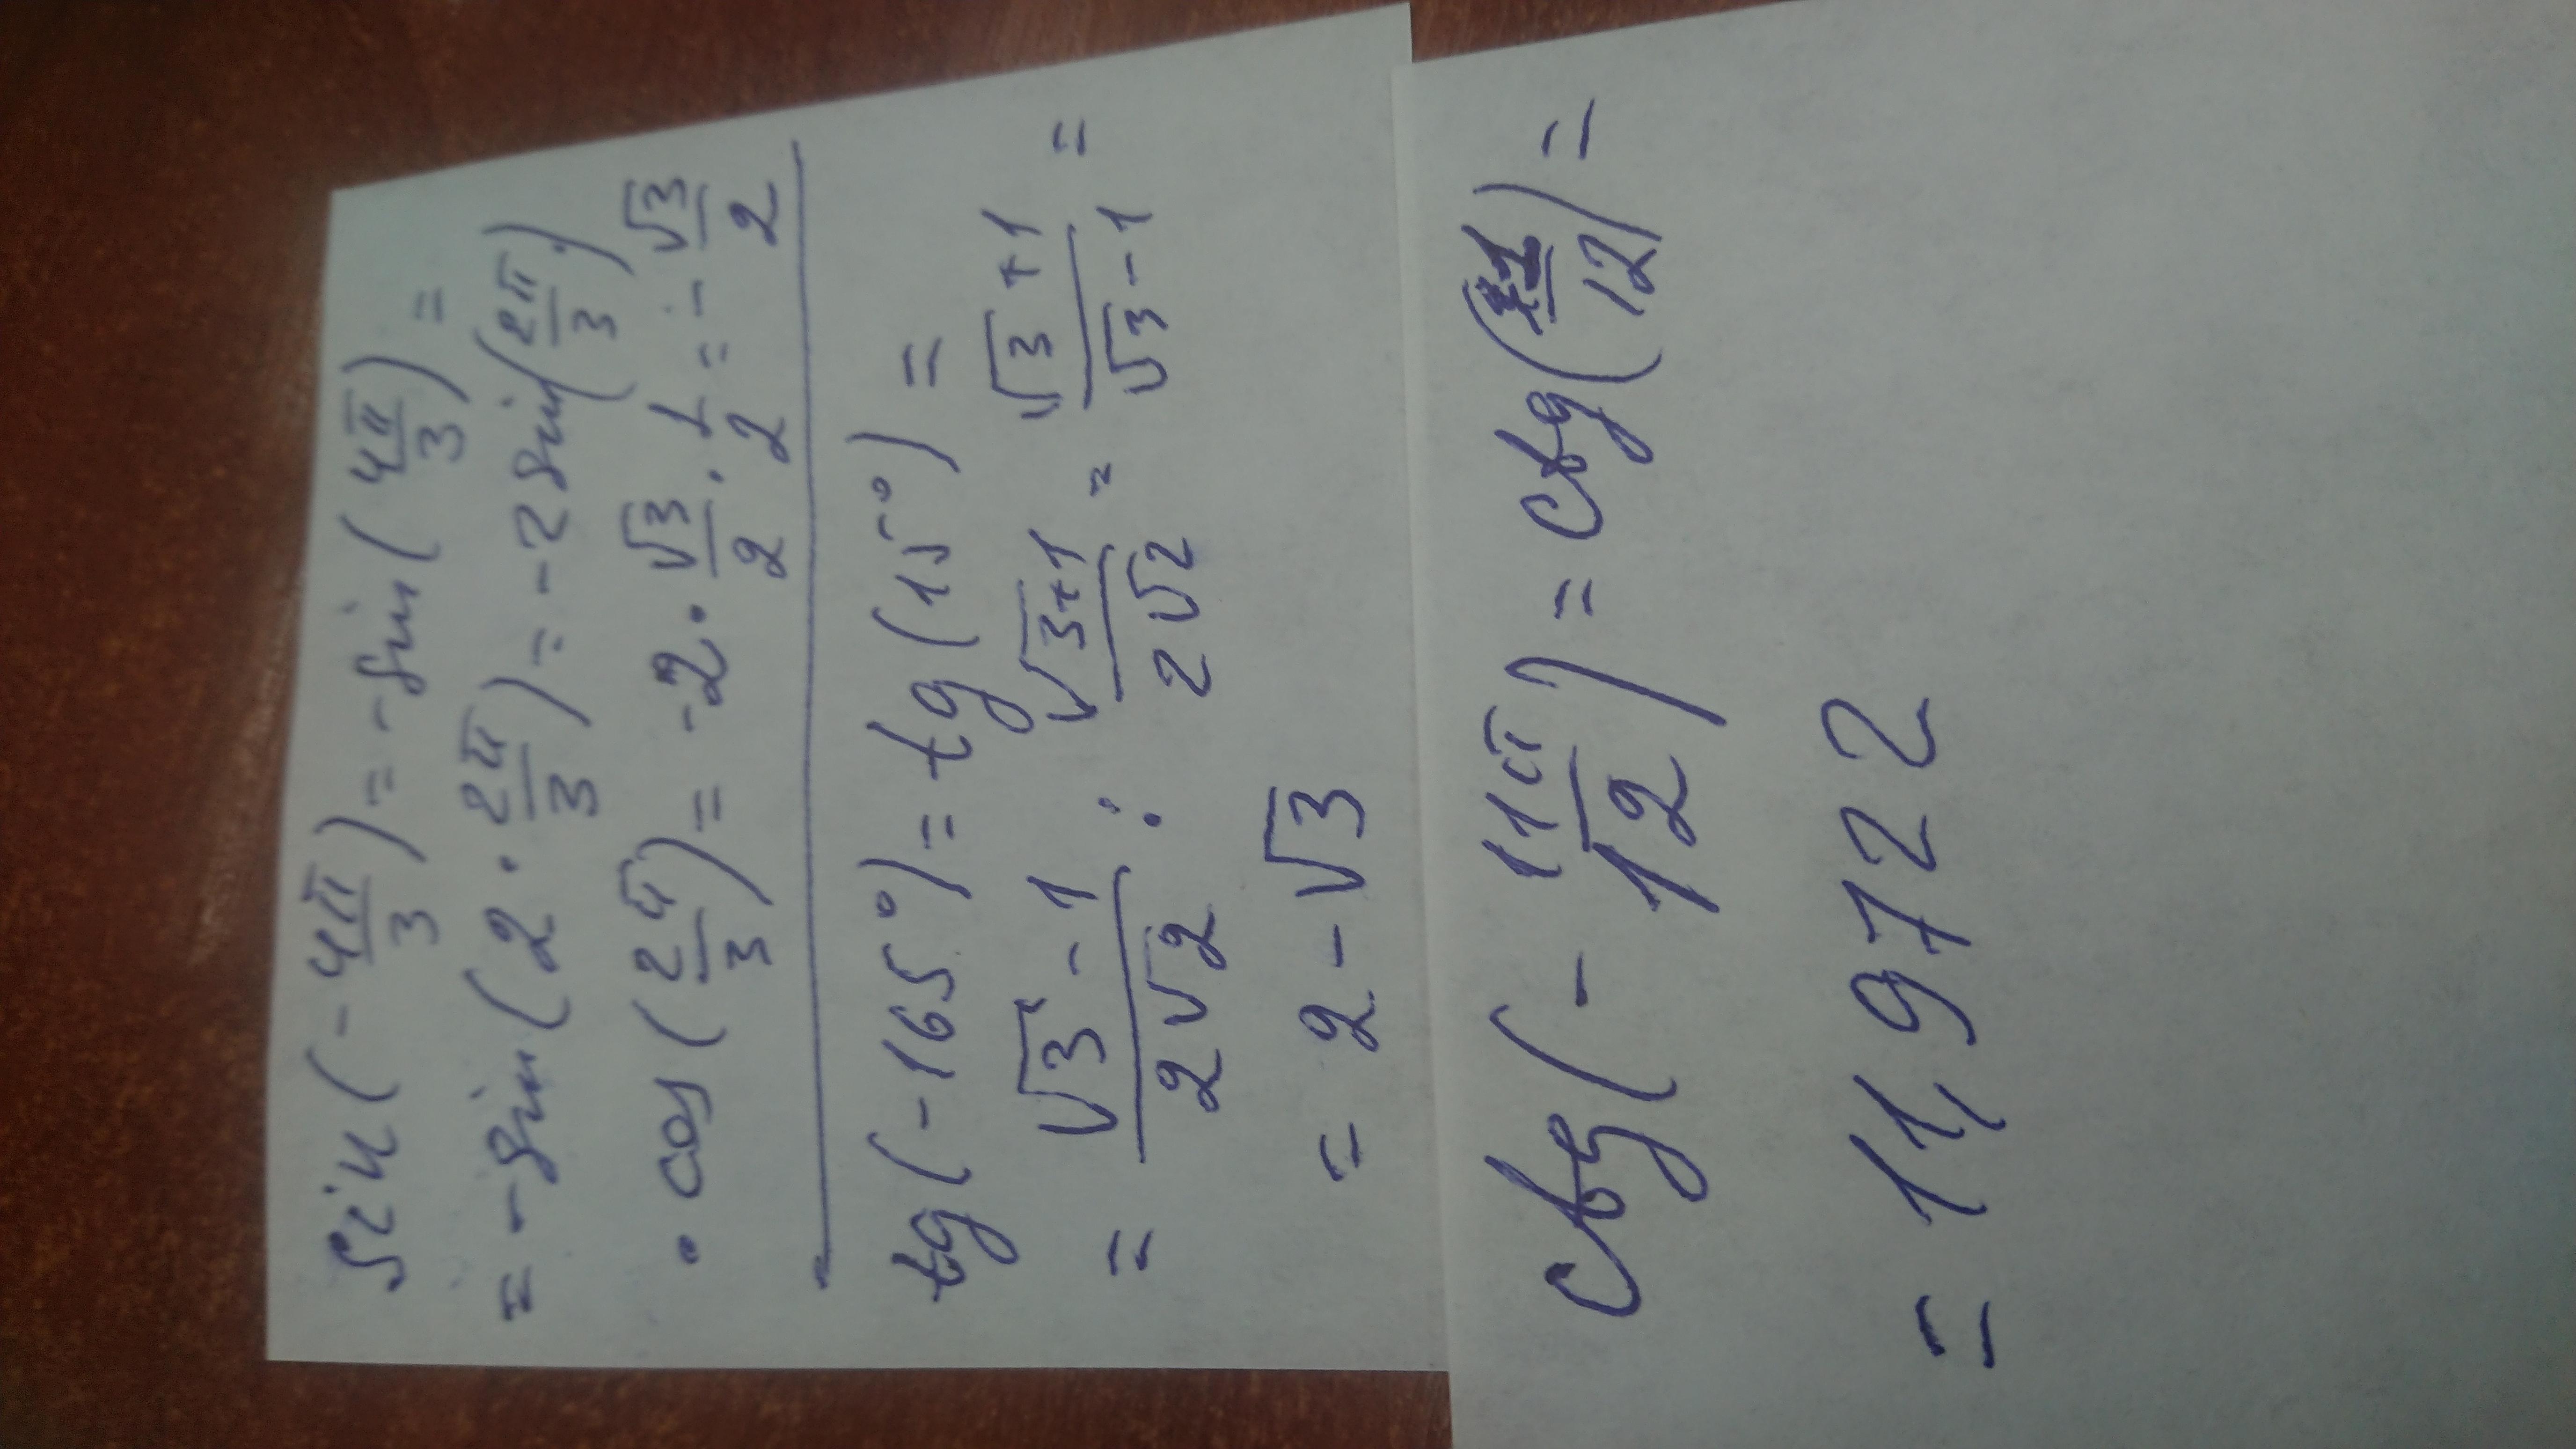 sin(-4π/3) = -sin(4π/3) =
= -sin(2·2π/3) = -2sin(2π/3)·
·cos(2π/3) = -2·√3/2·1/2 = -√3/2
tg(-165°) = tg(15°) =
= √3-1/2√2 : √3+1/2√2 = √3+1/√3-1 =
= 2-√3
ctg(-11π/12) = ctg(1/12) =
= 11,9722